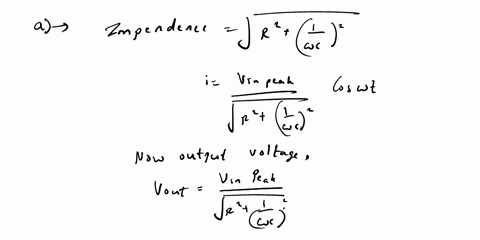 a) → Impendence = √(R² + (1/ωc)²)
i = Vin peak / √(R² + (1/ωc)²) Cos ωt
Now output voltage,
Vout = Vin Peak / √(R² + (1/ωc)²)